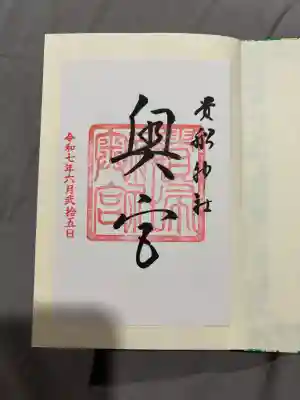 貴船神社
奥宮
令和七年六月弐拾五日